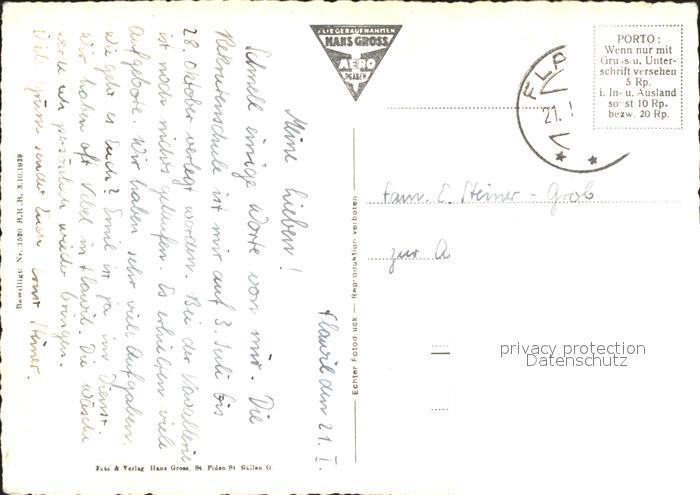 FLIEGERAUFNAHMEN
HANS GROSS
AERO
ST. GALLEN
PORTO:
Wenn nur mit
Gruss u. Unter-
schrift versehen
5 Rp.
i. In- u. Ausland
sonst 10 Rp.
bezw. 20 Rp.
21. I
Fam. E. Steiner-Grob
zur A
privacy protection
Datenschutz
Echter Fotodruck — Reproduktion verboten
Flawil den 21. I.
Meine Lieben!
Schnell einige Worte von mir. Die
Rekrutenschule ist mir auf 3. Juli bis
28. Oktober verlegt worden. Bei der Kavallerie
ist noch nichts gelaufen. Es erhielten viele
Aufgebote. Wir haben sehr viel Aufgaben.
Wie geht es Euch? Emil ist ja im Dienst.
Wir haben oft Nebel in Flawil. Die Wäsche
werde ich persönlich wieder bringen.
Viele Grüsse sendet Euch Ernst Steiner.
Bewilligt Nr. 1520 BRB. 3.10.1939
Foto & Verlag Hans Gross, St. Fiden St Gallen O.